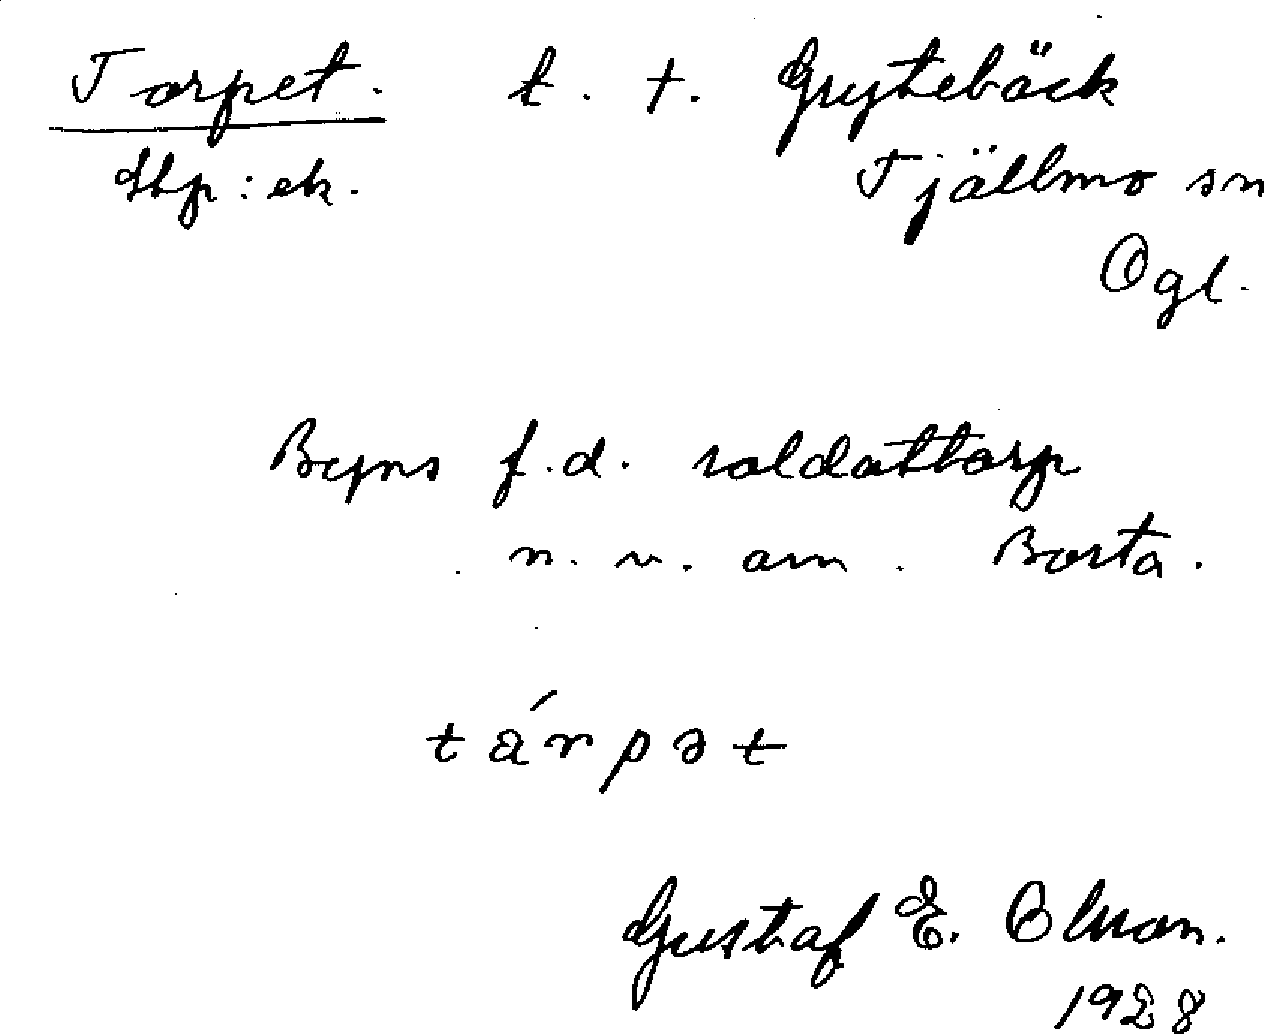 Torpet. t. †. Grytebäck
Stp: ek. Tjällmo sn
Ögl.
Byns f.d. soldattorp
n. v. om. Borta.
tårpət
Gustaf E. Olson.
1928